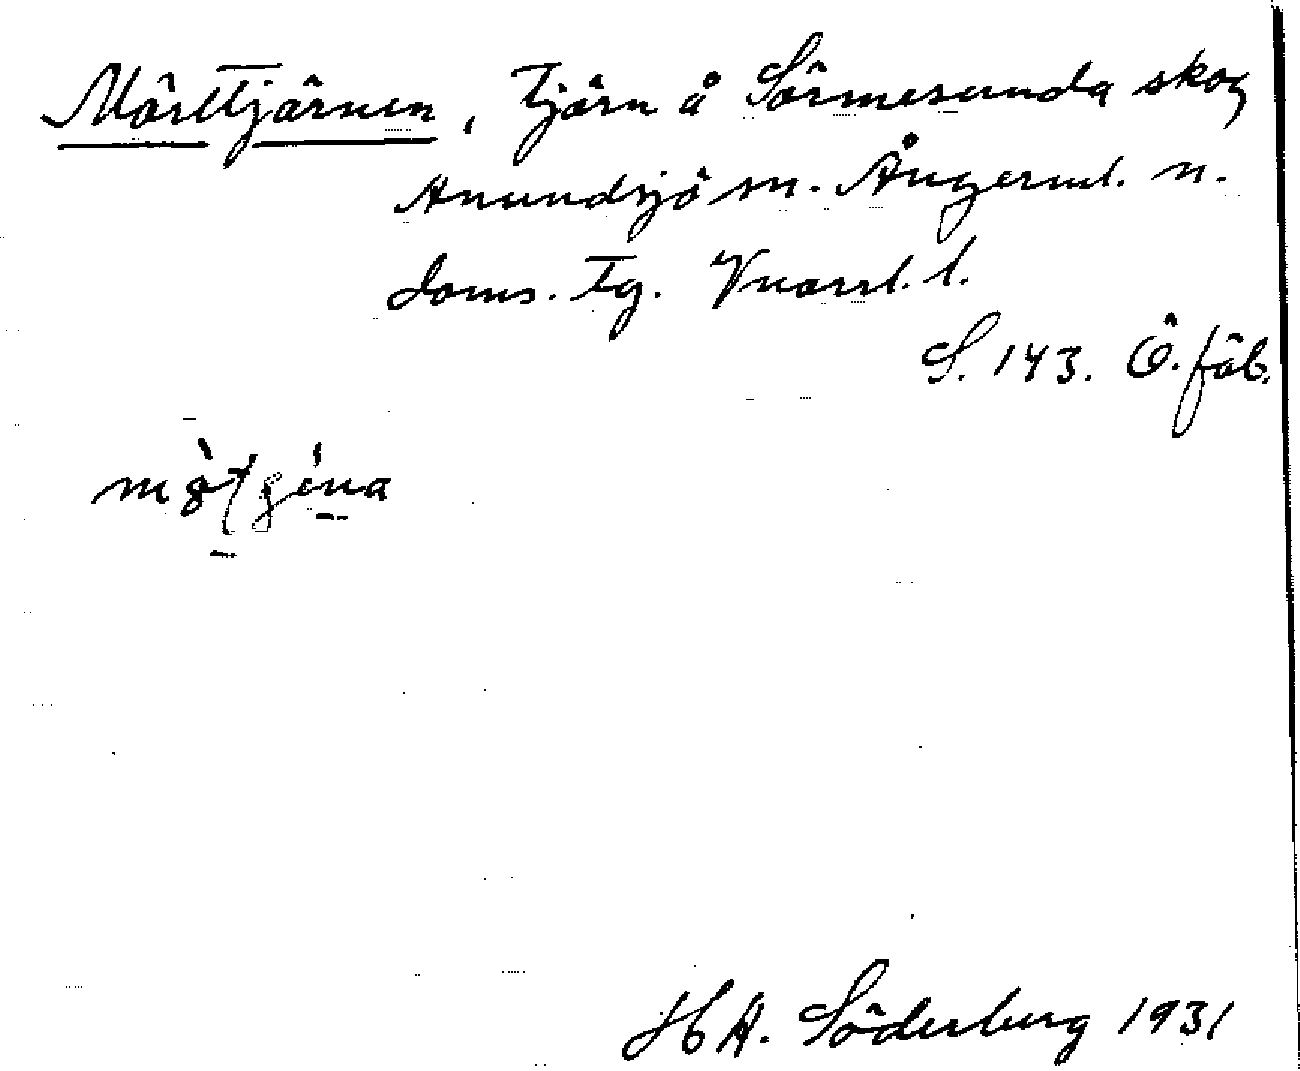 Mörttjärnen, Tjärn å Sörmesunda skog
Anundsjö sn. Ångerml. n.
doms. tg. Vnorrl. l.
S. 143. Ö. fäb.
H A. Söderberg 1931